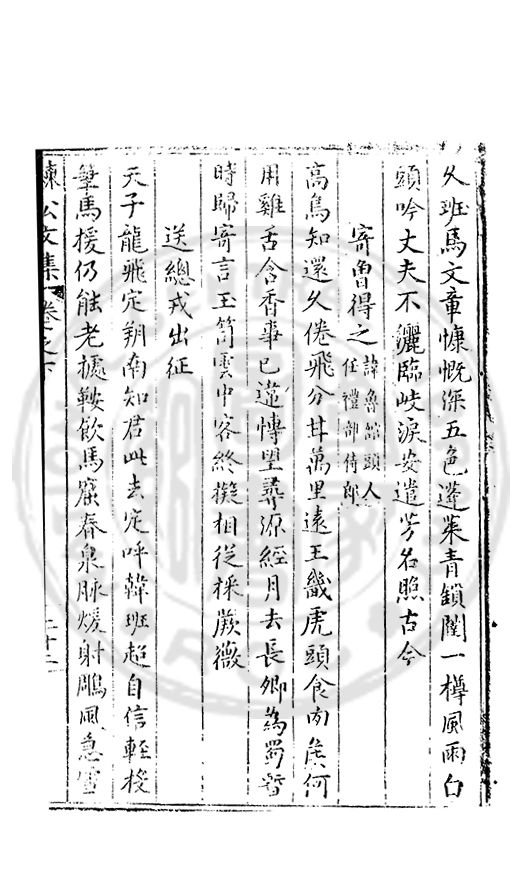 久班馬文章慷慨深五色蓬萊青鎖闥一樽風雨白
頭吟丈夫不灑臨岐淚安遣芳名照古今
寄魯得之 諱魯館頭人任禮部侍郎
高鳥知還久倦飛分甘萬里遠王畿虎頭食肉矦何
用雞舌含香事已違博望尋源經月去長卿為蜀暫
時歸寄言玉笥雲中客終擬相從採蕨薇
送總戎出征
天子龍飛定朔南知君此去定呼韓班超自信輕投
筆馬援仍能老據鞍飲馬窟春泉脉煖射鵰風急雪
陳公文集 卷之下 二十二